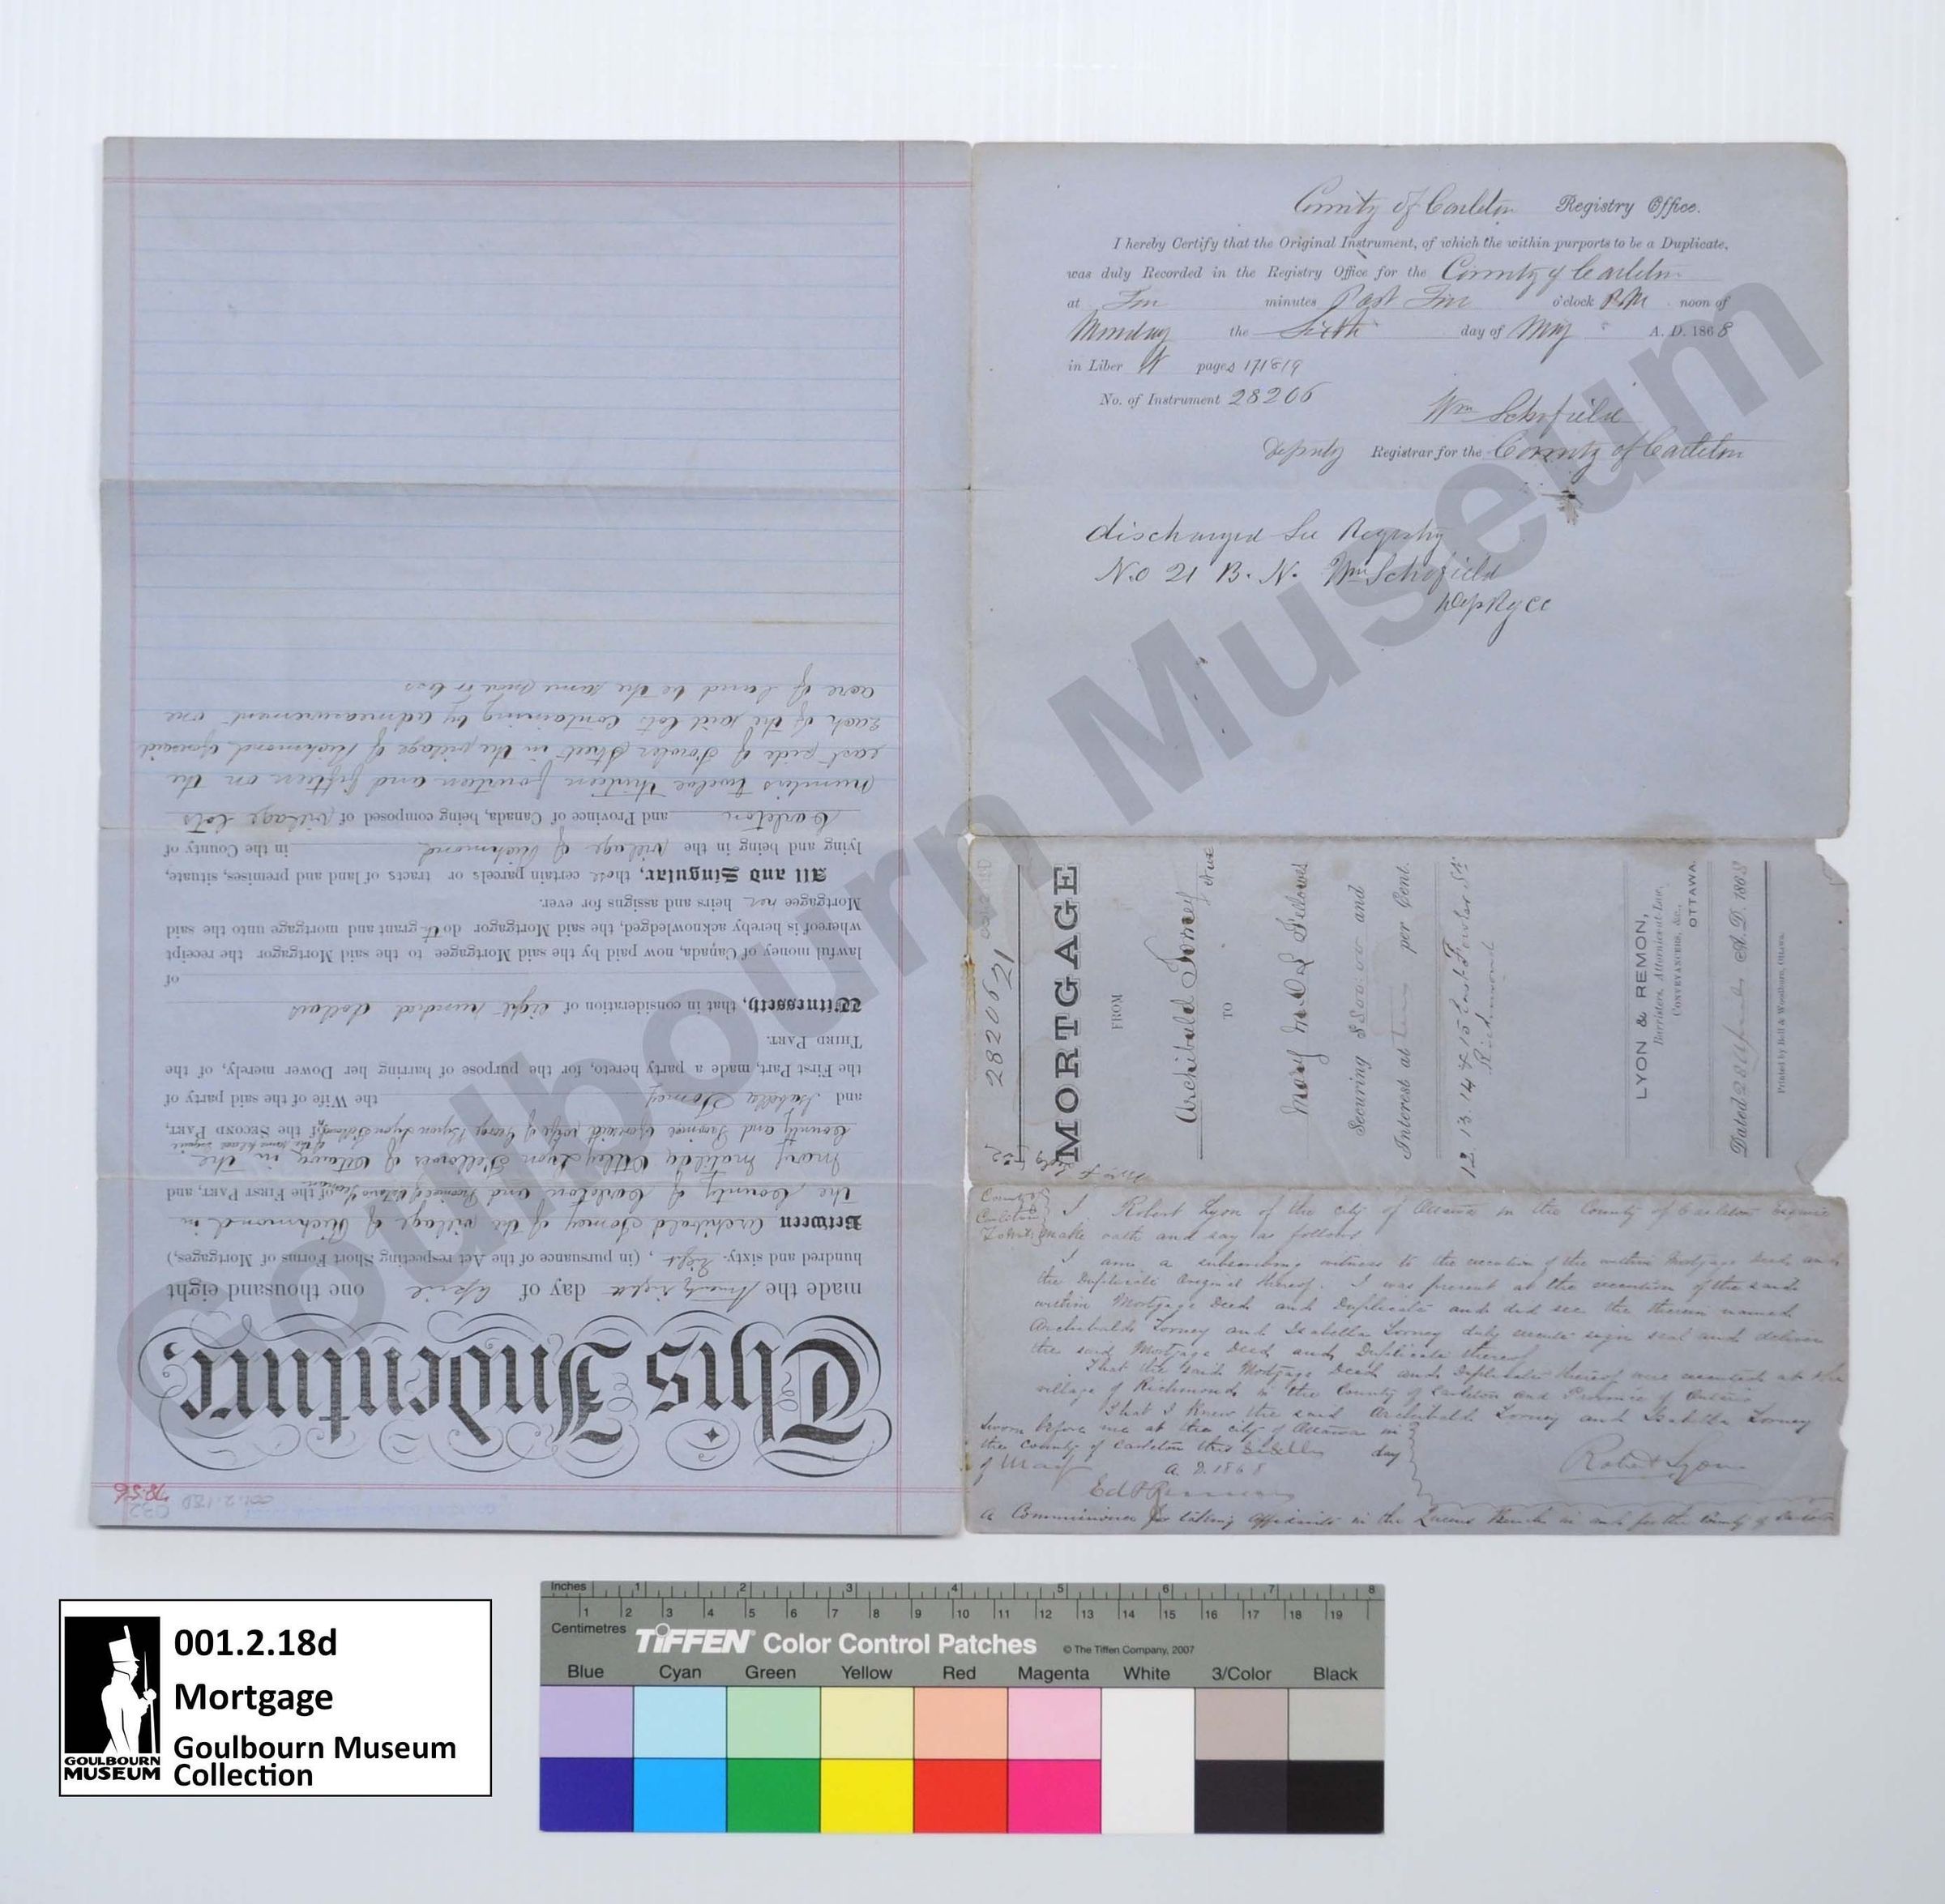 County of Carleton Registry Office.
I hereby Certify that the Original Instrument, of which the within purports to be a Duplicate,
was duly Recorded in the Registry Office for the County of Carleton
at minutes Past o'clock P.M. noon of
Monday the Sixth day of May A. D. 1868
in Liber pages 171819
No. of Instrument 28206
Wm Schofield
Deputy Registrar for the County of Carleton
discharged See Registry
No 21 B. N. Wm Schofield
Dep Reg CC
28206
21
MORTGAGE
FROM
Archibald Torney
TO
Mary M O L Fellowes
Securing $800.00 and
Interest at per Cent.
12. 13. 14 & 15 East Fowler St.
Richmond
LYON & REMON,
Barristers, Attornies at Law,
CONVEYANCERS, &c.,
OTTAWA.
Dated 28 April A. D. 1868
Printed by Bell & Woodburn, Ottawa.
County of
Carleton
To Wit:
I Robert Lyon of the city of Ottawa in the County of Carleton Esquire
make oath and say as follows
I am a subscribing witness to the execution of the within Mortgage Deed and
the Duplicate Original thereof. I was present at the execution of the said
within Mortgage Deed and Duplicate and did see the therein named
Archibald Torney and Isabella Torney duly execute sign seal and deliver
the said Mortgage Deed and Duplicate thereof
That the said Mortgage Deed and Duplicate thereof were executed at the
village of Richmond in the County of Carleton and Province of Ontario
That I know the said Archibald Torney and Isabella Torney
Sworn before me at the city of Ottawa in
the County of Carleton this Sixth day
of May A. D. 1868
Robert Lyon
A Commissioner for taking Affidavits in the Queens Bench in and for the County of Carleton
This Indenture,
made the twenty eighth day of April one thousand eight
hundred and sixty-eight, (in pursuance of the Act respecting Short Forms of Mortgages,)
Between Archibald Torney of the village of Richmond in
the County of Carleton and Province of Ontario of the FIRST PART, and
Mary Matilda Lyon Fellowes of Ottawa in the
County and Province aforesaid wife of George Byron Lyon Fellowes of the same place Esquire of the SECOND PART,
and Isabella Torney the Wife of the said party of
the First Part, made a party hereto, for the purpose of barring her Dower merely, of the
THIRD PART.
Witnesseth, that in consideration of eight hundred dollars
of
lawful money of Canada, now paid by the said Mortgagee to the said Mortgagor the receipt
whereof is hereby acknowledged, the said Mortgagor doth grant and mortgage unto the said
Mortgagee her heirs and assigns for ever.
All and Singular, those certain parcels or tracts of land and premises, situate,
lying and being in the village of Richmond in the County of
Carleton and Province of Canada, being composed of village lots
numbers twelve thirteen fourteen and fifteen on the
east side of Fowler Street in the village of Richmond aforesaid
each of the said lots containing by admeasurement one
acre of land be the same more or less
78.56
032
001.2.18D
Goulbourn Museum
GOULBOURN
MUSEUM
001.2.18d
Mortgage
Goulbourn Museum
Collection
Inches 1 2 3 4 5 6 7 8
1 2 3 4 5 6 7 8 9 10 11 12 13 14 15 16 17 18 19
Centimetres
TIFFEN Color Control Patches © The Tiffen Company, 2007
Blue Cyan Green Yellow Red Magenta White 3/Color Black